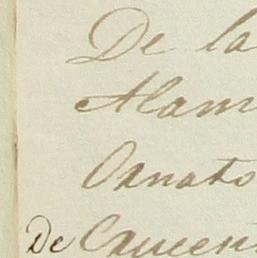 De la
Alam
Ornato
De Crucen